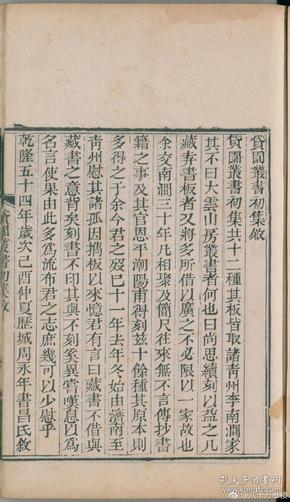 貸園叢書初集敘
貸園叢書初集共十二種其板皆取諸青州李南澗家
其不曰大雲山房叢書者何也曰尚思續刻以益之凡
藏弆書板者又將多所借以廣之不必限以一家故也
余交南澗三十年凡相聚及簡尺往來無不言傳抄書
籍之事及其官恩平潮陽甫得刻玆十餘種其原本則
多得之于余今君之歿已十一年去年冬始由濟南至
青州慰其諸孤因攜板以來憶君有言曰藏書不借與
藏書之意背矣刻書不印其與不刻奚異嘗嘆息以為
名言使果由此多為流布君之志庶幾可以少慰乎
乾隆五十四年歲次己酉仲夏歷城周永年書昌氏敘
貸園叢書初集敘
孔夫子旧书网